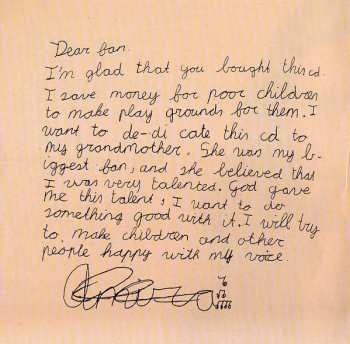 Dear fan.
I'm glad that you bought this cd.
I save money for poor children
to make play grounds for them. I
want to de-di cate this cd to
my grandmother. She was my bi-
ggest fan, and she believed that
I was very talented. God gave
me this talent, I want to do
something good with it. I will try
to make children and other
people happy with my voice.